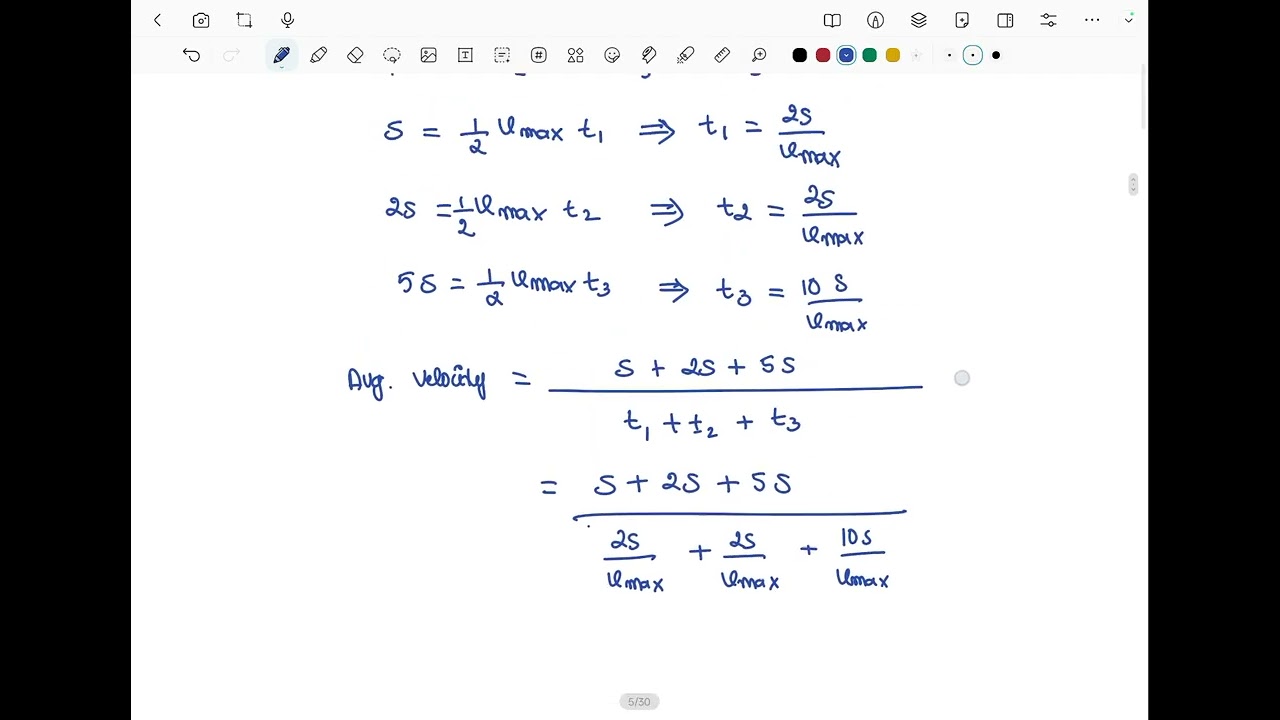 S = 1/2 Vmax t1 ⇒ t1 = 2S/Vmax
2S = 1/2 Vmax t2 ⇒ t2 = 2S/Vmax
5S = 1/2 Vmax t3 ⇒ t3 = 10 S/Vmax
Avg. Velocity = S + 2S + 5S
t1 + t2 + t3
= S + 2S + 5S
2S/Vmax + 2S/Vmax + 10S/Vmax
5/30